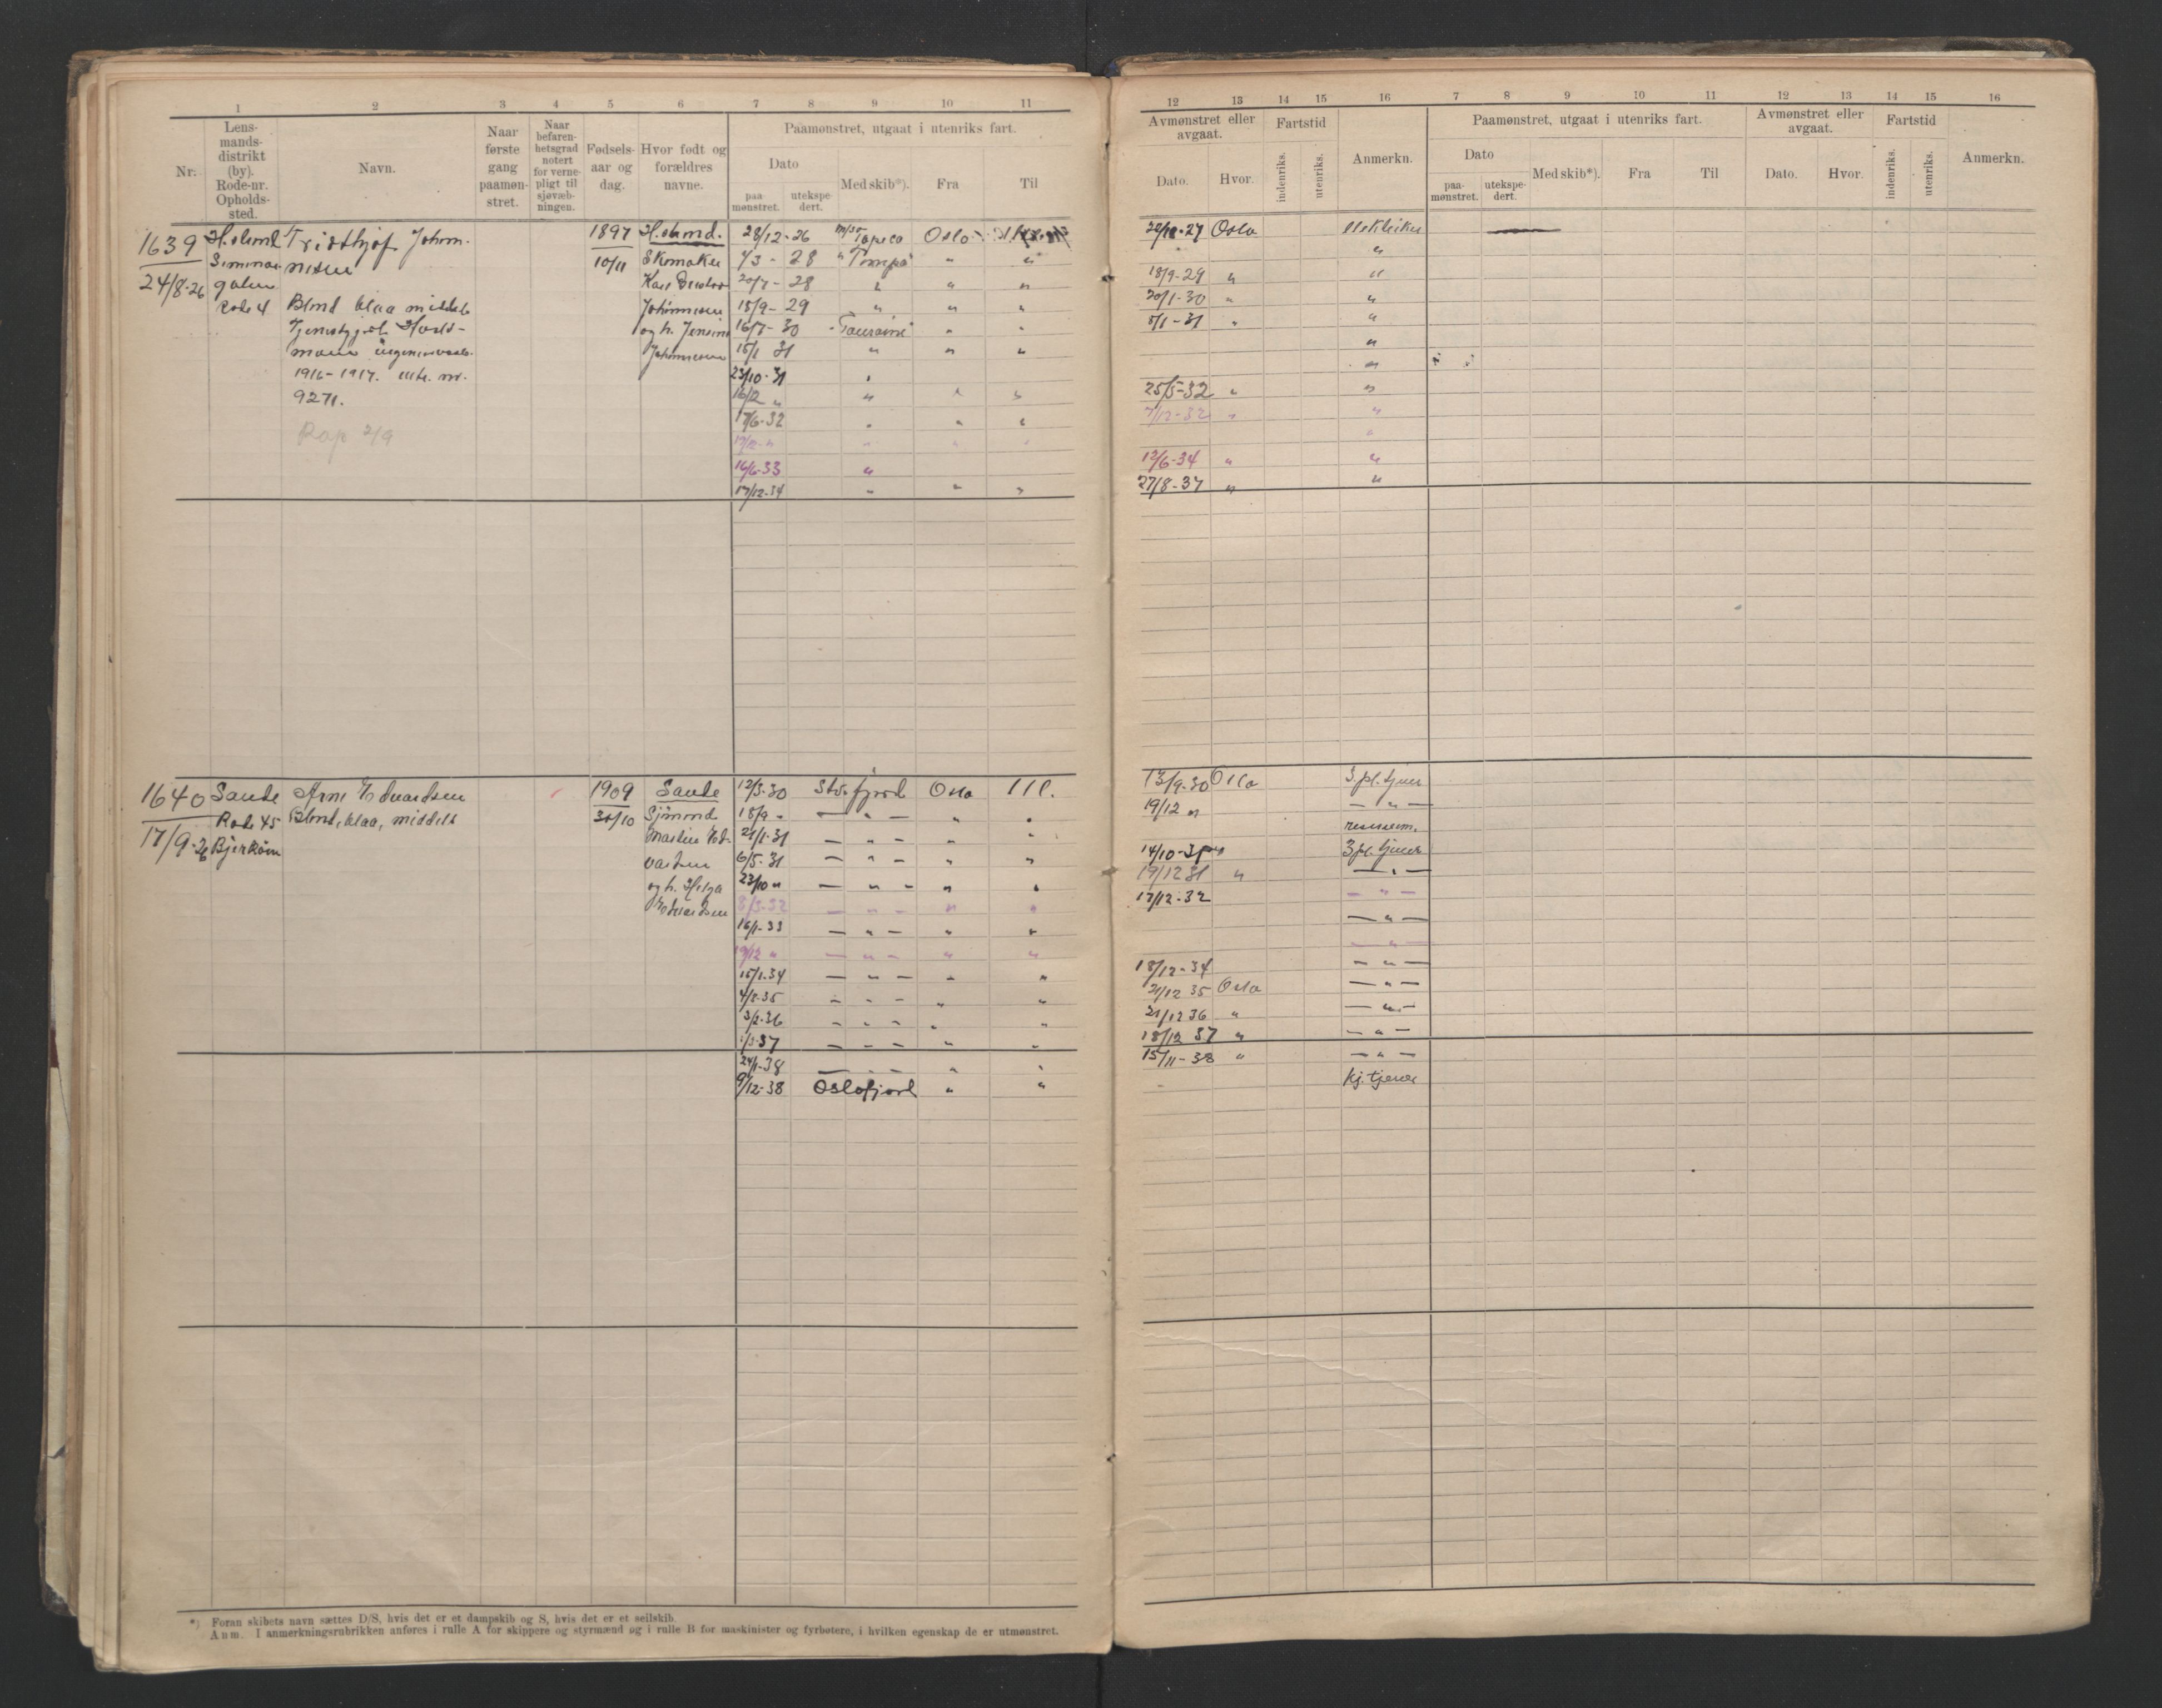 1 2 3 4 5 6 7 8 9 10 11
Nr.
Lens-
mands-
distrikt
(by).
Rode-nr.
Opholds-
sted.
Navn.
Naar
første
gang
paamøn-
stret.
Naar
befaren-
hetsgrad
notert
for verne-
pligt til
sjøvæb-
ningen.
Fødsels-
aar og
dag.
Hvor født og
forældres
navne.
Paamønstret, utgaat i utenriks fart.
Dato
paa-
mønstret.
utekspe-
dert.
Med skib*).
Fra
Til
1639
24/8-26
H.strand
Rode 4
Fridthjof Johan-
nesen
Blond blaa middels
1916-1917.
9271.
Rap 2/9
1897
10/11
H.strand.
Skomaker
Johannesen
og h. Jensine
Johannesen
28/12-26 Topeca Oslo
/3 - 28 " " "
20/7 - 28 " " "
15/9 - 29 " " "
16/7 - 30 " "
15/1 31 " " "
23/10-31 "
16/12 " " " "
17/6-32 " " "
" " "
16/6-33 "
17/12-34 " " "
1640
17/9-26
Sande
Rode 45
Arne Edvardsen
Blond, blaa, middels
1909
30/10
Sande
Sjømand
Edvardsen
12/3-30 Oslo Utl.
18/9 " — " — " "
21/1-31 — " — " "
6/5-31 — " — " "
23/10 " — " — " "
8/3-32 — " — " "
16/1-33 — " — " "
19/12 " — " — " "
15/1-34 — " — " "
4/2-35 — " — " "
3/2-36 — " — " "
/3-37 — " — " "
24/1-38 — " — " "
9/12-38 Oslofjord " "
*) Foran skibets navn sættes D/S, hvis det er et dampskib og S, hvis det er et seilskib.
Anm. I anmerkningsrubrikken anføres i rulle A for skippere og styrmænd og i rulle B for maskinister og fyrbøtere, i hvilken egenskap de er utmønstret.
12 13 14 15 16 7 8 9 10 11 12 13 14 15 16
Avmønstret eller
avgaat.
Dato.
Hvor.
Fartstid
indenriks.
utenriks.
Anmerkn.
Paamønstret, utgaat i utenriks fart.
Dato
paa-
mønstret.
utekspe-
dert.
Med skib*).
Fra
Til
Avmønstret eller
avgaat.
Dato.
Hvor.
Fartstid
indenriks.
utenriks.
Anmerkn.
Oslo
"
18/9-29 " "
20/1-30 " "
5/1-31 " "
"
"
25/5-32 " "
7/12-32 " "
"
12/6-34 " "
27/8-37 " "
13/9-30 Oslo 3. pl. tjener
19/12 " — " —
14/10-31 3 pl. tjener
19/12 31 " — " —
17/12-32 — " —
— " —
— " —
18/12-34 — " —
21/12 35 Oslo — " —
21/12 36 " — " —
18/12 37 " — " —
15/11-38 " — " —
kj. tjener